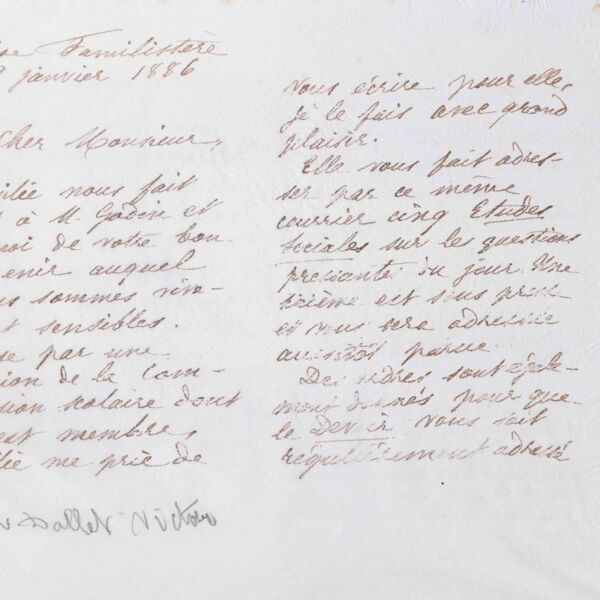 se Familistère
9 janvier 1886
Cher Monsieur,
ilie nous fait
à M. Godin et
moi de votre bon
enir auquel
us sommes vive-
t sensibles.
se par une
sion de la Com-
sion scolaire dont
est membre,
lie me prie de
Dallet Victor
vous écrire pour elle,
je le fais avec grand
plaisir.
Elle vous fait adres-
ser par ce même
courrier cinq Etudes
sociales sur les questions
pressantes du jour. Une
sixième est sous presse
et vous sera adressée
aussitôt parue.
Des ordres sont égale-
ment donnés pour que
le Devoir vous soit
régulièrement adressé